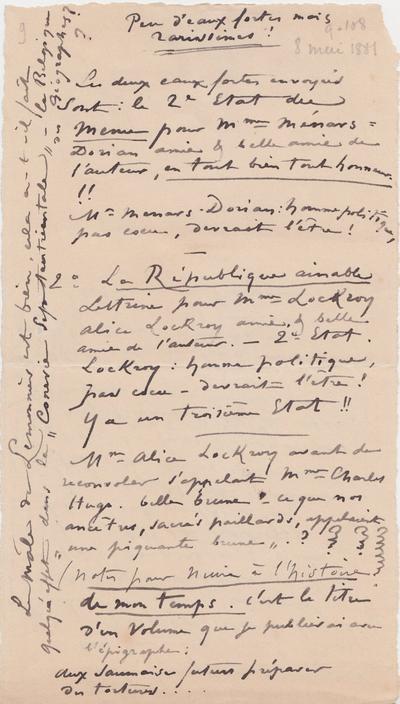 Peu d'eaux fortes mais
rarissimes !
9-108
8 mai 1881
Les deux eaux fortes envoyées
sont : le 2e Etat du
Menu pour Mme Ménars =
Dorian amie & belle amie de
l'auteur, en tout bien tout honneur
!!
Mr Menars-Dorian : homme politique,
pas cocu, devrait l'être !
2o La République aimable
Lettrine pour Mme LocKroy
Alice LocKroy amie, & belle
amie de l'auteur. — 2e Etat.
LocKroy : homme politique,
pas cocu — devrait l'être !
Y a un troisième Etat !!
Mme Alice LocKroy avant de
reconvoler s'appelait Mme Charles
Hugo. belle brune — ce que nos
ancêtres, sacrés paillards, appelaient
"une piquante brune". ? ? ? ?
(Notes pour Nuire à l'histoire
de mon temps. c'est le titre
d'un Volume que je publierai avec
l'épigraphe :
aux Saumaise futurs préparer
des tortures....
Le mâle du Lemonnier est bien, cela a-t-il fait
quelqu'effet dans la "Canevie Septentrionale" — la Belgique
des Géographes ?
?